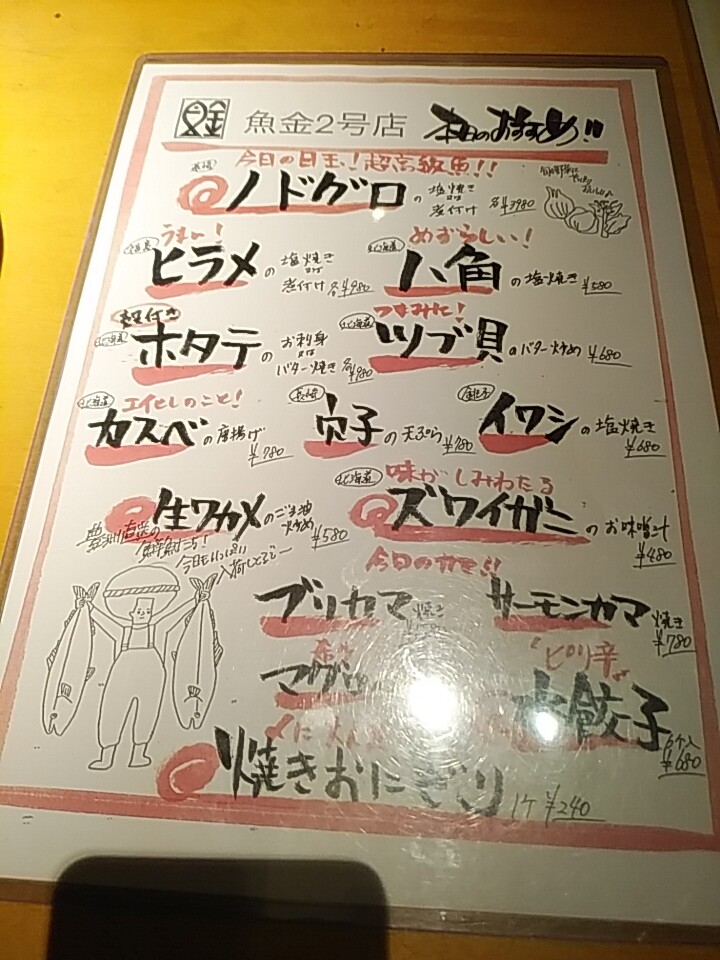 魚金 魚金2号店 本日のおすすめ!!
今日の目玉!超高級魚!!
ノドグロの塩焼き又は煮付け 各¥3980
うまい!
ヒラメの塩焼き又は煮付け 各¥980
北海道 めずらしい!
八角の塩焼き ¥580
殻付き
北海道 ホタテのお刺身又はバター焼き 各¥980
北海道 つまみに!
ツブ貝のバター炒め ¥680
北海道 エイヒレのこと!
カスベの唐揚げ ¥780
長崎
穴子の天ぷら ¥780
銚子
イワシの塩焼き ¥680
生ワカメのごま油炒め ¥580
北海道 味がしみわたる
ズワイガニのお味噌汁 ¥480
豊洲直送の
鮮魚たち!
今日もいっぱい
入荷してるでー
今日のカマ!!
ブリカマ焼き
サーモンカマ焼き ¥780
マグロ
ピリ辛
水餃子 6ケ入 ¥680
焼きおにぎり 1ケ ¥240